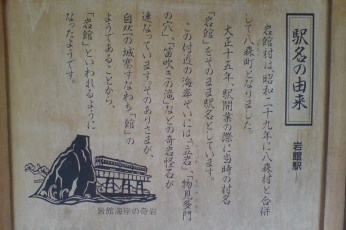 駅名の由来
岩館駅
岩館村は、昭和二十九年に八森村と合併
して八森町となりました。
大正十五年、駅開業の際に当時の村名
「岩館」をそのまま駅名としています。
この付近の海岸ぞいには、「立岩」、「物見多門
の穴」、「笛吹きの滝」などの奇岩怪岩が
連なっています。そのありさまが、
自然の城塞すなわち「館」の
ようであることから、
「岩館」といわれるように
なったようです。
岩館海岸の奇岩